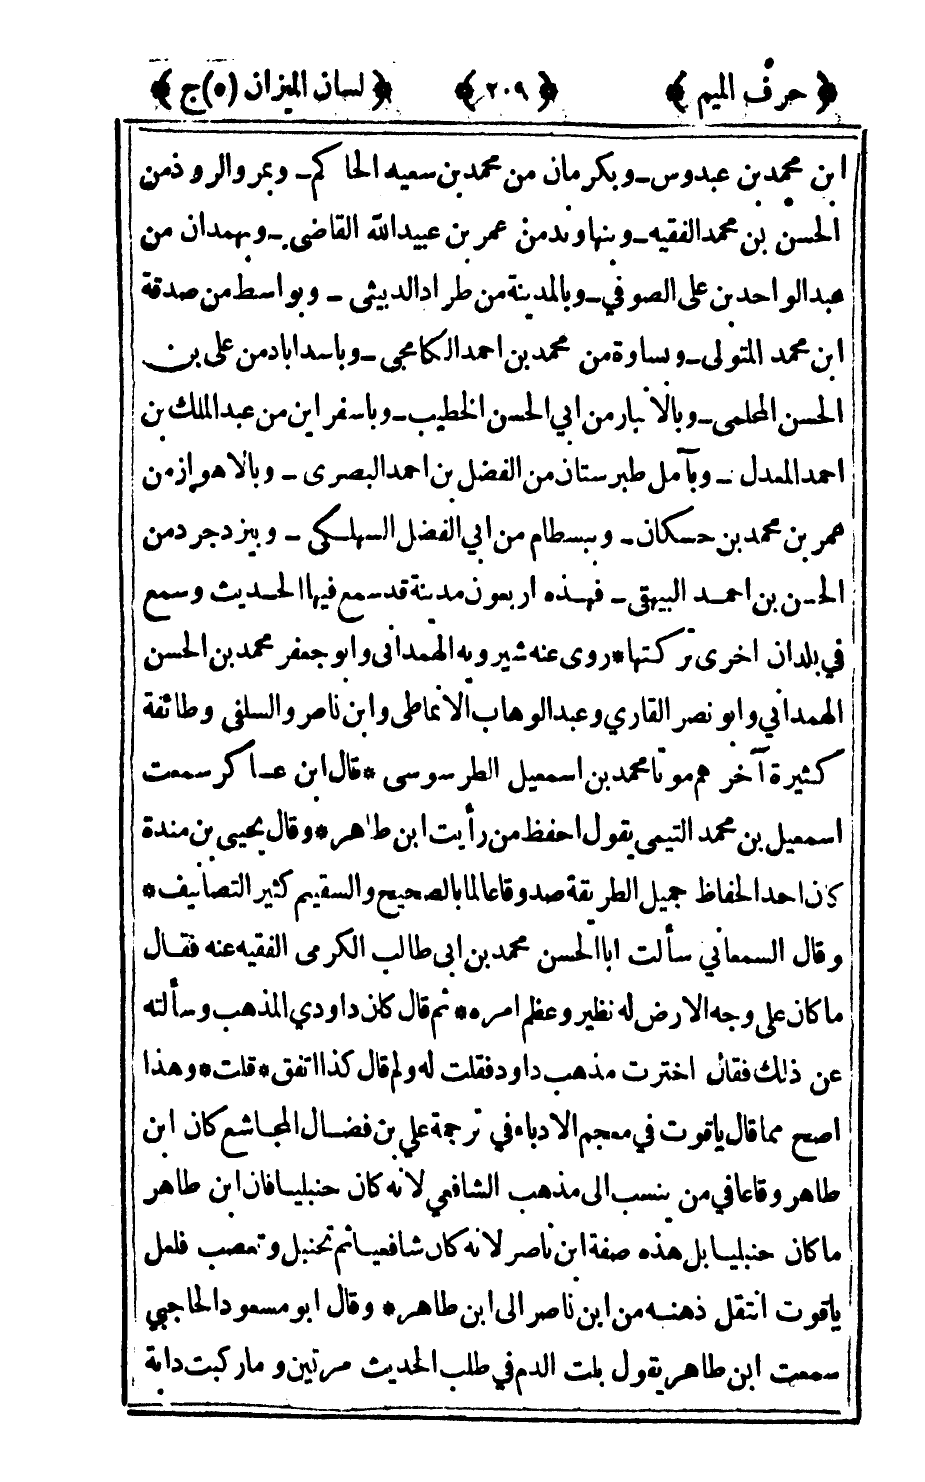 ﴿ حرف الميم ﴾ ﴿ ٢٠٩ ﴾ ﴿ لسان الميزان (٥) ج ﴾
ابن محمد بن عبدوس ـ وبكرمان من محمد بن سعيه الحاكم ـ وبمروالروذ من
الحسن بن محمد الفقيه ـ وبنهاوند من عمر بن عبيدالله القاضي ـ وبهمدان من
عبدالواحد بن على الصوفي ـ وبالمدينة من طراد الدبيثى ـ وبواسط من صدقة
ابن محمد المتولى ـ وبساوة من محمد بن احمد الكامجى ـ وباسداباد من على بن
الحسن المحلمى ـ وبالانبار من ابي الحسن الخطيب ـ وباسفراين من عبدالملك بن
احمد المعدل ـ وبآمل طبرستان من الفضل بن احمد البصرى ـ وبالاهواز من
عمر بن محمد بن حسكان ـ وببسطام من ابي الفضل السهلكى ـ وبيزدجرد من
الحسن بن احمد البيهقى ـ فهذه اربعون مدينة قد سمع فيها الحديث وسمع
في بلدان اخرى تركتها * روى عنه شيرويه الهمدانى وابو جعفر محمد بن الحسن
الهمداني وابو نصر القاري وعبدالوهاب الانماطى وابن ناصر والسلفى وطائفة
كثيرة آخرهم موتا محمد بن اسمعيل الطرسوسى * قال ابن عساكر سمعت
اسمعيل بن محمد التيمى يقول احفظ من رأيت ابن طاهر * وقال يحيى بن مندة
كان احد الحفاظ جميل الطريقة صدوقا عالما بالصحيح والسقيم كثير التصانيف *
وقال السمعاني سألت ابا الحسن محمد بن ابى طالب الكرمى الفقيه عنه فقال
ما كان على وجه الارض له نظير وعظم امره * ثم قال كان داودي المذهب وسألته
عن ذلك فقال اخترت مذهب داود فقلت له ولم قال كذا اتفق * قلت * وهذا
اصح مما قال ياقوت في معجم الادباء في ترجمة علي بن فضال المجاشع كان ابن
طاهر وقاعا في من ينسب الى مذهب الشافعي لانه كان حنبليا فان ابن طاهر
ما كان حنبليا بل هذه صفة ابن ناصر لانه كان شافعيا ثم تحنبل وتعصب فلعل
ياقوت انتقل ذهنه من ابن ناصر الى ابن طاهر * وقال ابو مسعود الحاجبي
سمعت ابن طاهر يقول بلت الدم في طلب الحديث مرتين وما ركبت دابة